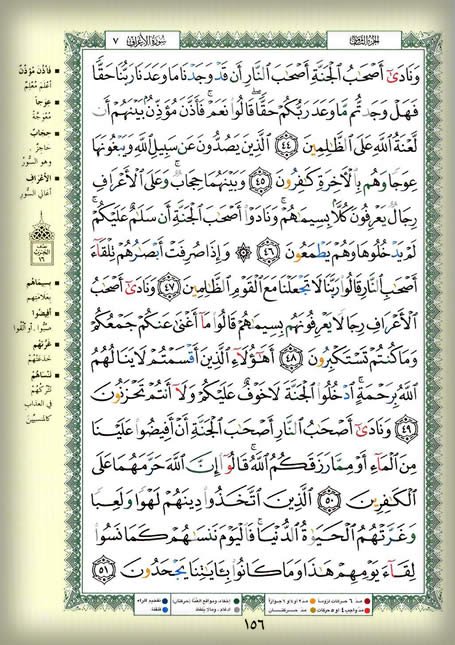 الجزء الثامن
سورة الأعراف ٧
وَنَادَىٰٓ أَصْحَٰبُ ٱلْجَنَّةِ أَصْحَٰبَ ٱلنَّارِ أَن قَدْ وَجَدْنَا مَا وَعَدَنَا رَبُّنَا حَقًّا
فَهَلْ وَجَدتُّم مَّا وَعَدَ رَبُّكُمْ حَقًّا ۖ قَالُوا۟ نَعَمْ ۚ فَأَذَّنَ مُؤَذِّنٌۢ بَيْنَهُمْ أَن
لَّعْنَةُ ٱللَّهِ عَلَى ٱلظَّٰلِمِينَ ٤٤ ٱلَّذِينَ يَصُدُّونَ عَن سَبِيلِ ٱللَّهِ وَيَبْغُونَهَا
عِوَجًا وَهُم بِٱلْءَاخِرَةِ كَٰفِرُونَ ٤٥ وَبَيْنَهُمَا حِجَابٌ ۚ وَعَلَى ٱلْأَعْرَافِ
رِجَالٌ يَعْرِفُونَ كُلًّۢا بِسِيمَىٰهُمْ ۚ وَنَادَوْا۟ أَصْحَٰبَ ٱلْجَنَّةِ أَن سَلَٰمٌ عَلَيْكُمْ ۚ
لَمْ يَدْخُلُوهَا وَهُمْ يَطْمَعُونَ ٤٦ ۞ وَإِذَا صُرِفَتْ أَبْصَٰرُهُمْ تِلْقَآءَ
أَصْحَٰبِ ٱلنَّارِ قَالُوا۟ رَبَّنَا لَا تَجْعَلْنَا مَعَ ٱلْقَوْمِ ٱلظَّٰلِمِينَ ٤٧ وَنَادَىٰٓ أَصْحَٰبُ
ٱلْأَعْرَافِ رِجَالًا يَعْرِفُونَهُم بِسِيمَىٰهُمْ قَالُوا۟ مَآ أَغْنَىٰ عَنكُمْ جَمْعُكُمْ
وَمَا كُنتُمْ تَسْتَكْبِرُونَ ٤٨ أَهَٰٓؤُلَآءِ ٱلَّذِينَ أَقْسَمْتُمْ لَا يَنَالُهُمُ
ٱللَّهُ بِرَحْمَةٍ ۚ ٱدْخُلُوا۟ ٱلْجَنَّةَ لَا خَوْفٌ عَلَيْكُمْ وَلَآ أَنتُمْ تَحْزَنُونَ
٤٩ وَنَادَىٰٓ أَصْحَٰبُ ٱلنَّارِ أَصْحَٰبَ ٱلْجَنَّةِ أَنْ أَفِيضُوا۟ عَلَيْنَا
مِنَ ٱلْمَآءِ أَوْ مِمَّا رَزَقَكُمُ ٱللَّهُ ۚ قَالُوٓا۟ إِنَّ ٱللَّهَ حَرَّمَهُمَا عَلَى
ٱلْكَٰفِرِينَ ٥٠ ٱلَّذِينَ ٱتَّخَذُوا۟ دِينَهُمْ لَهْوًا وَلَعِبًا
وَغَرَّتْهُمُ ٱلْحَيَوٰةُ ٱلدُّنْيَا ۚ فَٱلْيَوْمَ نَنسَىٰهُمْ كَمَا نَسُوا۟
لِقَآءَ يَوْمِهِمْ هَٰذَا وَمَا كَانُوا۟ بِـَٔايَٰتِنَا يَجْحَدُونَ ٥١
فأذن مؤذن
أعلم معلم
عوجاً
معوجة
حجاب
حاجز
وهو السور
الأعراف
أعالي السور
بسيماهم
بعلامتهم
أفيضوا
صبوا. أو ألقوا
غرتهم
خدعتهم
ننساهم
نتركهم
في العذاب
كالمنسيين
مد ٦ حركات لزوماً
مد ٢ أو ٤ أو ٦ جوازاً
إخفاء، ومواقع الغنة (حركتان)
تفخيم الراء
مد واجب ٤ أو ٥ حركات
مد حركتان
إدغام، وما لا يلفظ
قلقلة
١٥٦